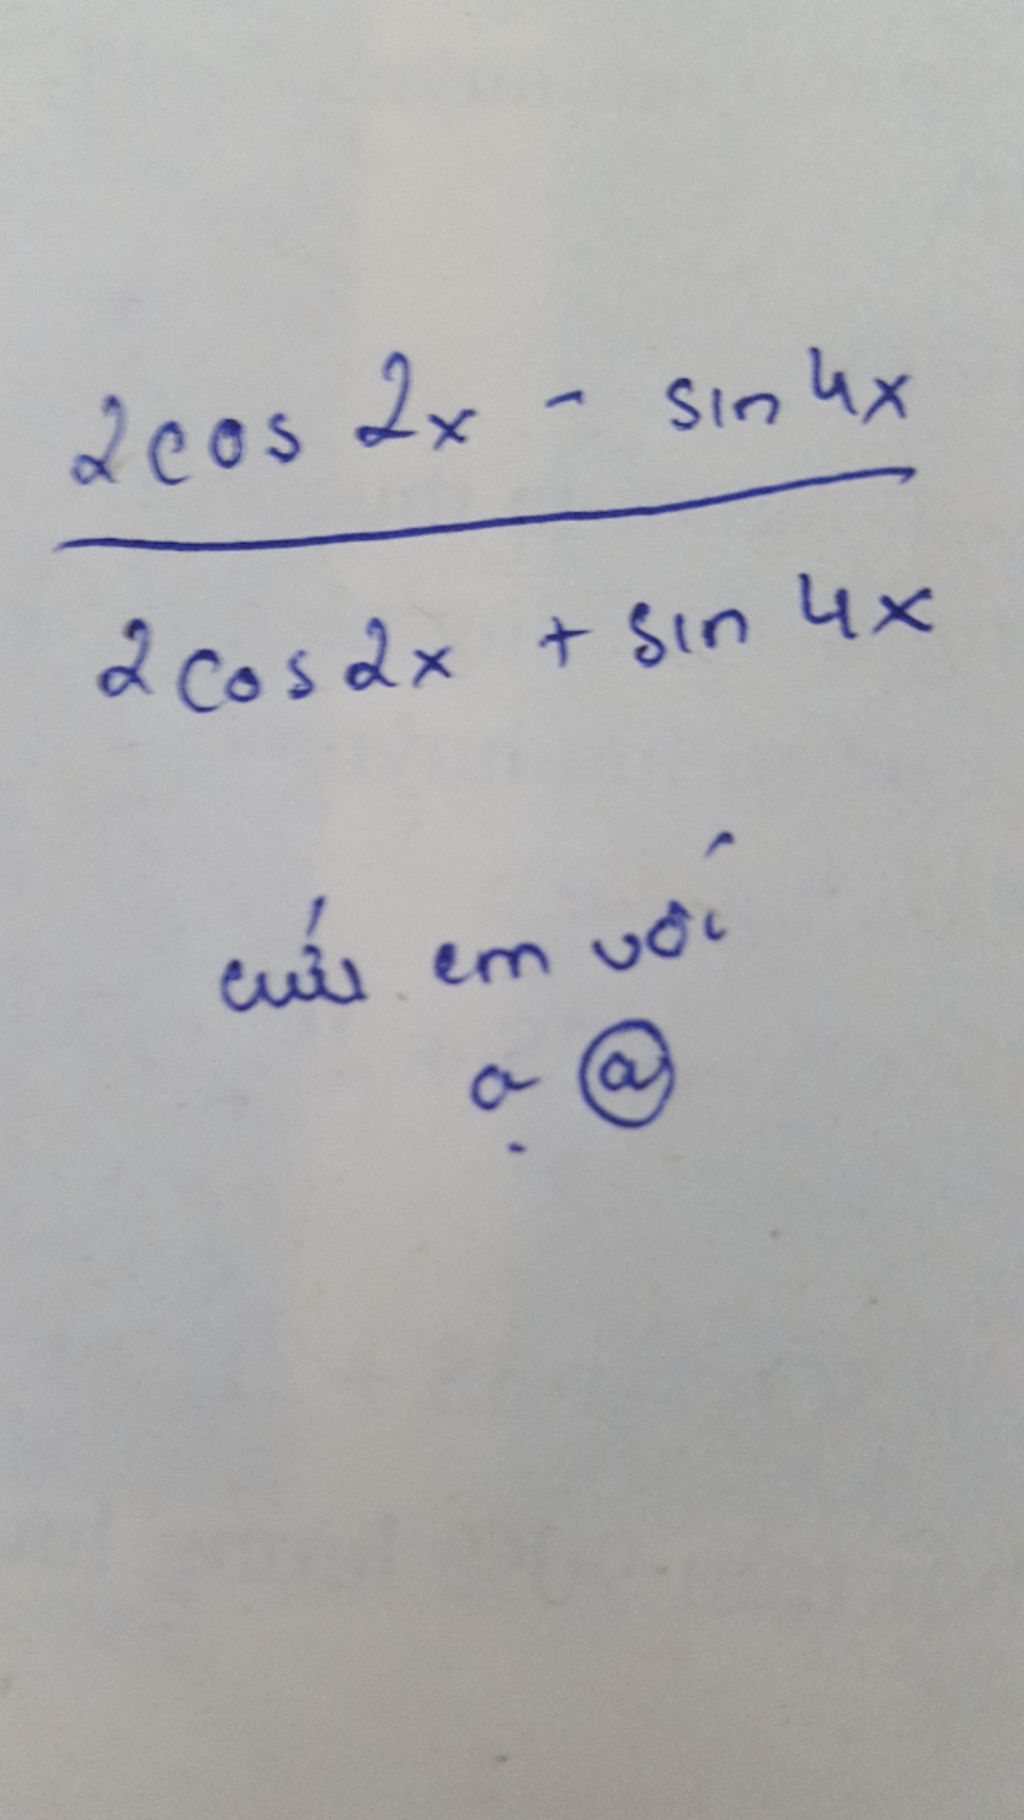 2cos 2x - sin 4x
2cos2x + sin 4x
cứu em với
ạ @